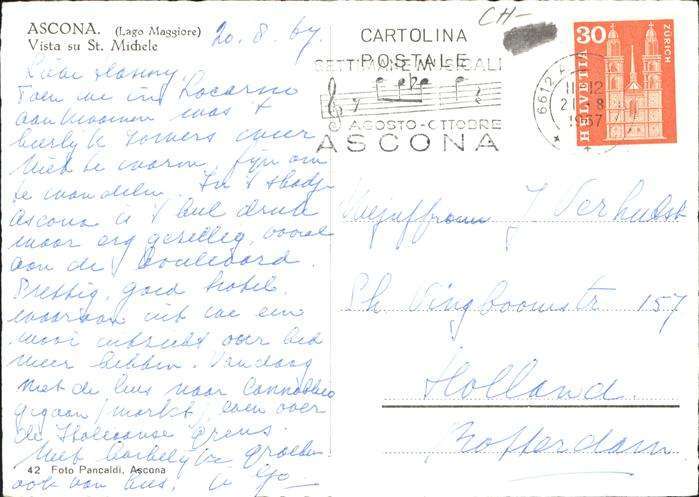 ASCONA. (Lago Maggiore)
Vista su St. Michele
20.8.67
Lieve Hanny,
Toen we in Locarno
aankwamen was 't
heerlijk zomers weer
Niet te warm, fijn om
te wandelen. In 't stadje
Ascona is 't heel druk
maar erg gezellig, vooral
aan de boulevard.
Prettig, goed hotel.
waaruit we een
mooi uitzicht over het
meer hebben. Vandaag
met de bus naar Cannobbio
gegaan (markt) even over
de Italiaanse grens.
Met hartelijke groeten
ook van
42 Foto Pancaldi, Ascona
CARTOLINA
POSTALE
CH-
SETTIMANE MUSICALI
AGOSTO-OTTOBRE
ASCONA
6612
11-12
21 8
1967
30
HELVETIA
ZÜRICH
Mejuffrouw J. Verhulst
Ph Vingboomstr 157
Holland.
Rotterdam